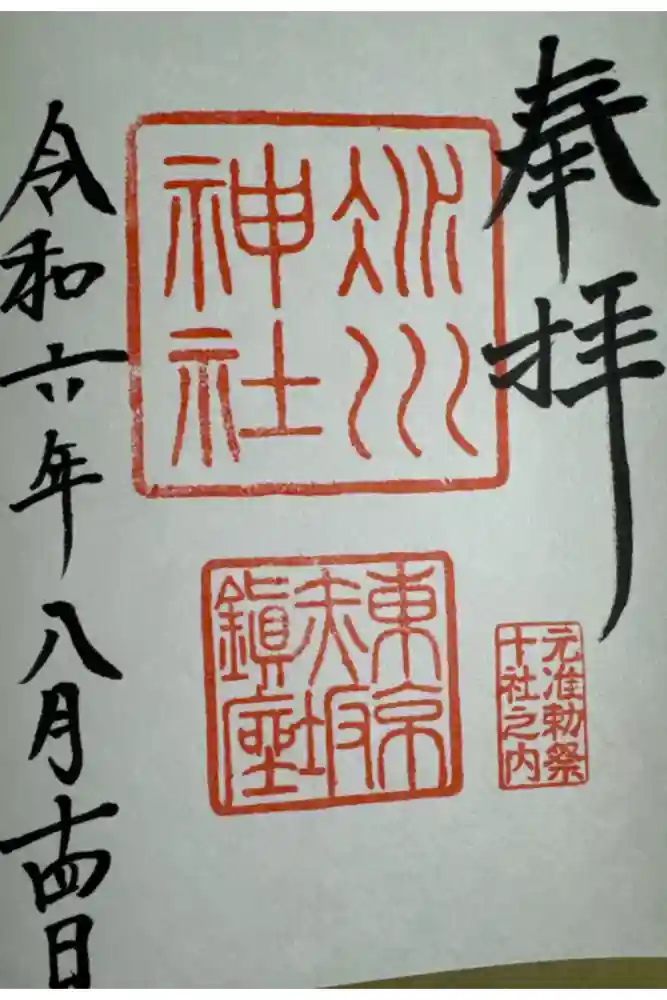 奉拝
氷川
神社
東京
赤坂
鎭座
元准勅祭
十社之内
令和六年八月十四日